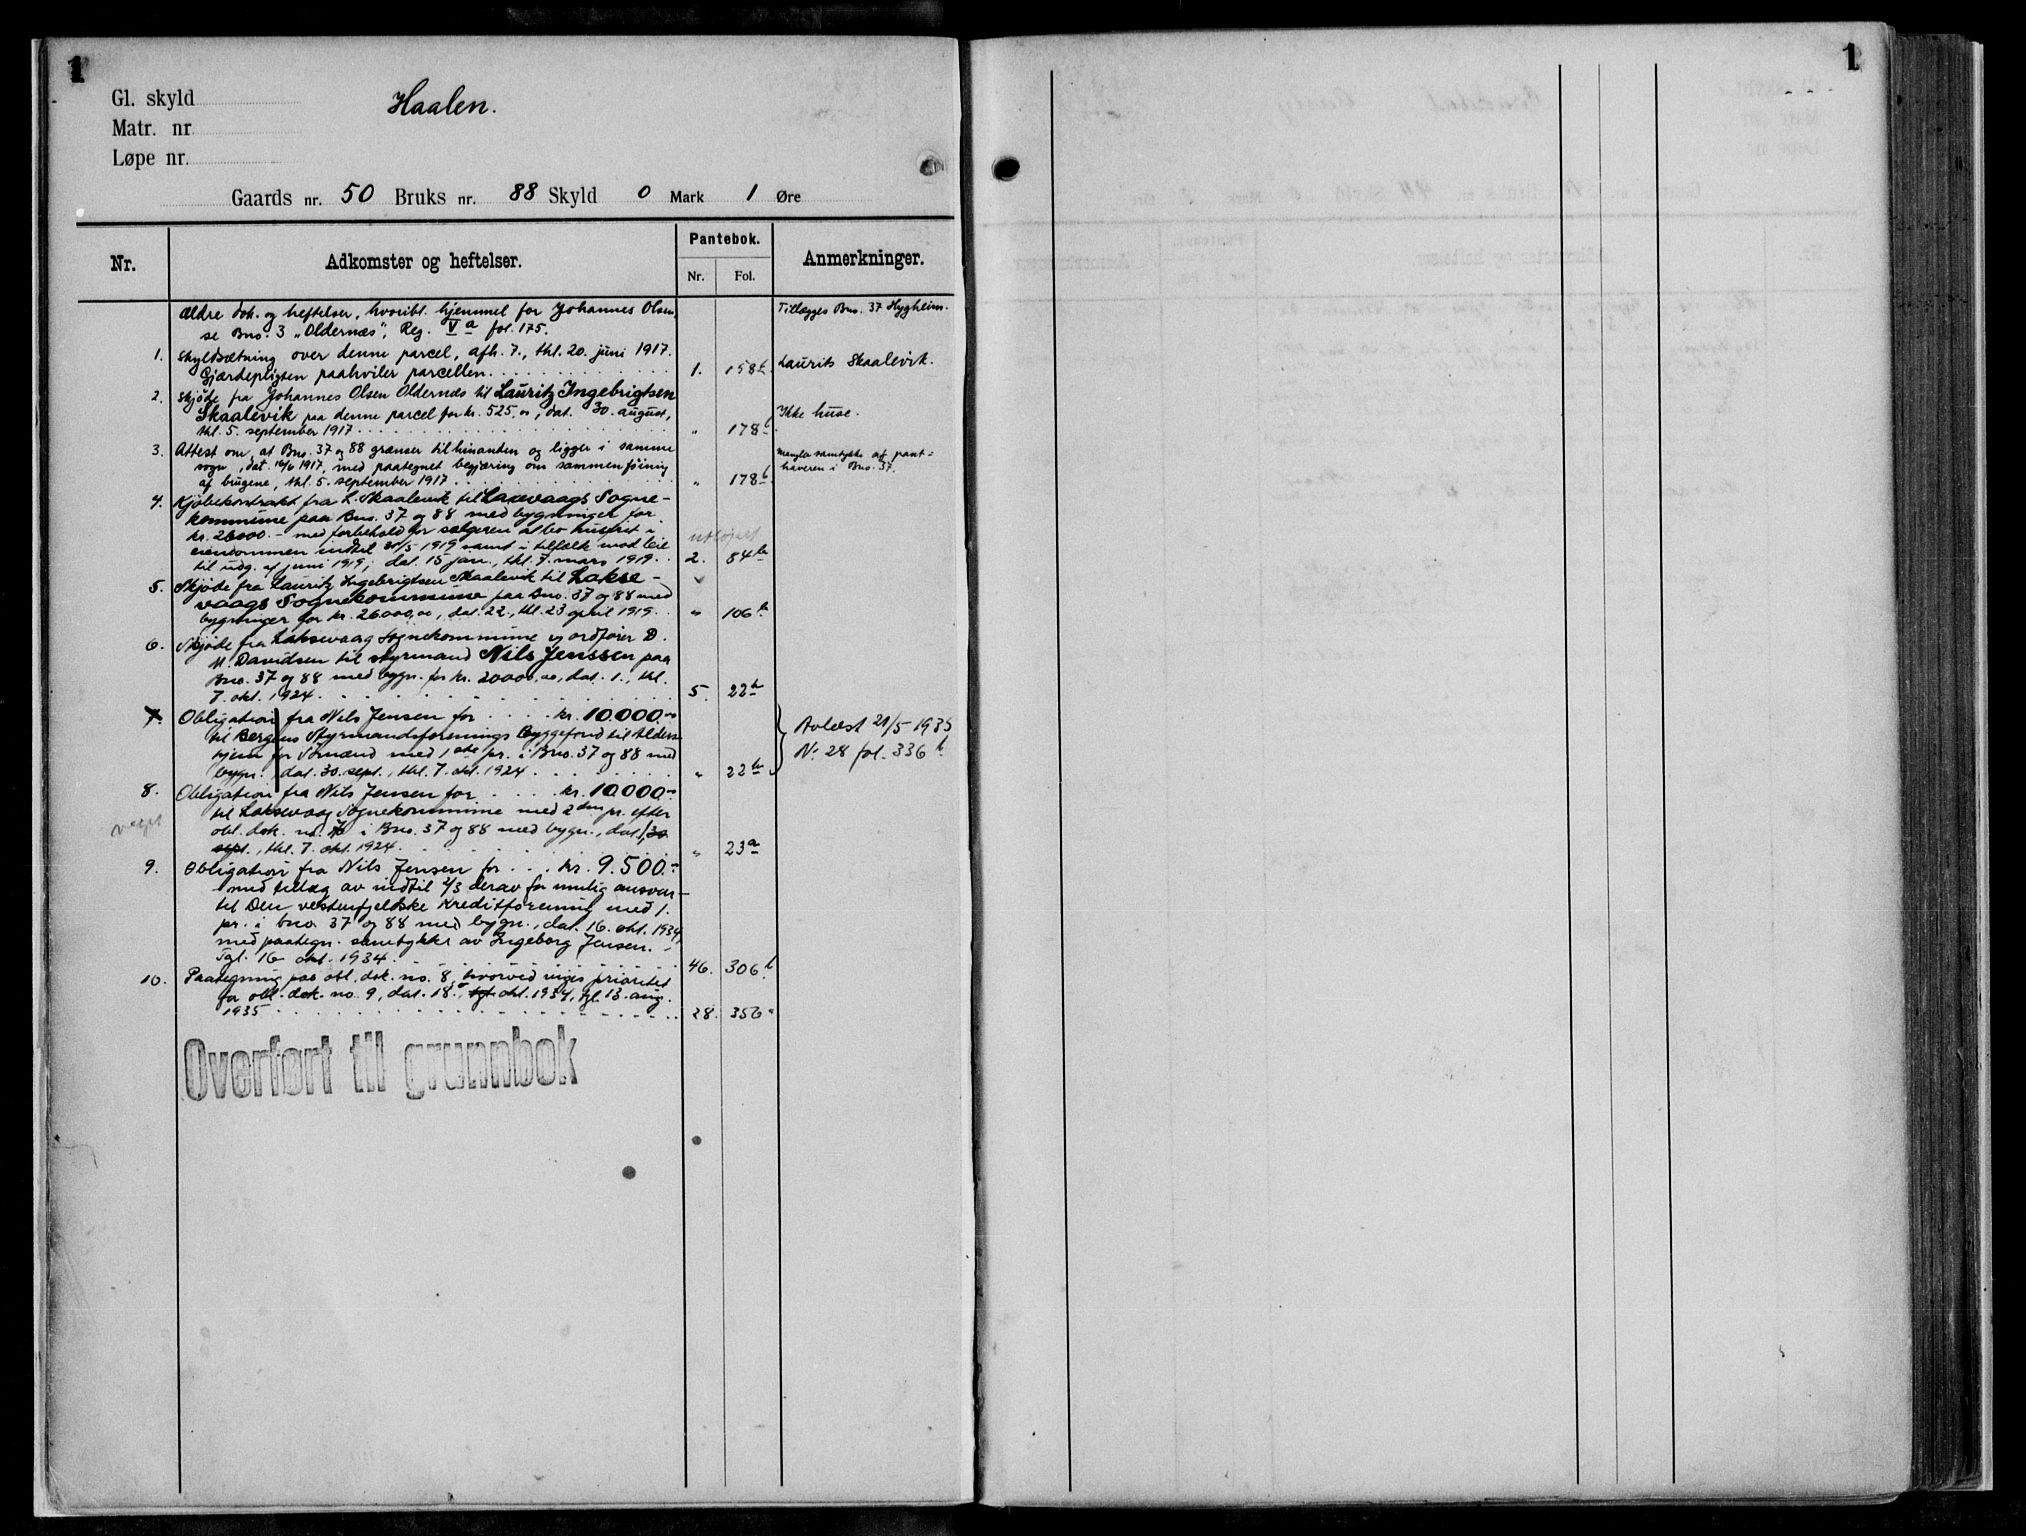 1
1
Gl. skyld
Haalen.
Matr. nr
Løpe nr.
Gaards nr. 50 Bruks nr. 88 Skyld 0 Mark 1 Øre
Nr.
Adkomster og heftelser.
Pantebok.
Nr. Fol.
Anmerkninger.
Ældre dok. og heftelser, hvoribl. hjemmel for Johannes Olsen,
se Bno. 3 „Oldernæs", Reg. V a fol. 175.
Tillægges Bno. 37 Hygheim.
1. Skyldsætning over denne parcel, afh. 7., thl. 20. juni 1917.
Gjærdepligten paahviler parcellen. 1. 158 b.
Laurits Skaalevik.
2. Skjøde fra Johannes Olsen Oldernæs til Lauritz Ingebrigtsen
Skaalevik paa denne parcel for kr. 525,00, dat. 30. august,
thl. 5. september 1917 " 178 b
Ikke huse.
3. Attest om, at Bno. 37 og 88 grænser til hinanden og ligger i samme
sogn, dat. 16/6 1917, med paategnet begjæring om sammenføining
af brugene, thl. 5. september 1917 " 178 b
Mangler samtykke af pant=
haveren i Bno. 37.
4. Kjøbekontrakt fra L. Skaalevik til Laxevaags Sogne-
kommune paa Bno. 37 og 88 med bygninger for
kr. 26000.- med forbehold for sælgeren at bo husfrit i
eiendommen indtil 30/5 1919 samt i tilfælde mod leie
til udg. af juni 1919, dat. 15 jan., thl. 7. mars 1919. 2. 84 b
utløpet
5. Skjøde fra Lauritz Ingebrigtsen Skaalevik til Lakse-
vaags Sognekommune paa Bno. 37 og 88 med
bygninger for kr. 26000,00, dat. 22., thl. 23 april 1919. " 106 b
6. Skjøde fra Laksevaag Sognekommune v ordfører D.
M. Davidsen til styrmand Nils Jenssen paa
Bno. 37 og 88 med bygn. for kr. 20000,00, dat. 1., thl.
7. okt. 1924. 5. 22 b
7. Obligation fra Nils Jensen for kr. 10.000.-
til Bergens Styrmandsforenings Byggefond til Alders
hjem for Sømænd med 1ste pr. i Bno. 37 og 88 med
bygn., dat. 30. sept., thl. 7. okt. 1924 " 22 b
Avlæst 21/5-1935
N. 28 fol. 336 b.
8. Obligation fra Nils Jensen for kr. 10.000.-
til Laksevaag Sognekommune med 2den pr. efter
obl. dok. no. 7 i Bno. 37 og 88 med bygn., dat. 1, 30.
sept., thl. 7. okt. 1924. " 23 a
9. Obligation fra Nils Jensen for kr. 9.500.-
med tillæg av indtil 2/3 derav for mulig ansvar
til Den vestenfjeldske Kreditforening med 1.
pr. i bno. 37 og 88 med bygn., dat. 16. okt. 1934,
med paategn. samtykke av Ingeborg Jensen.
Tgl. 16 okt. 1934. 46. 306 b
10. Paategning paa obl. dok. no. 8, hvorved viges prioritet
for obl. dok. no. 9, dat. 18., tgt. okt. 1934, tgl. 13. aug.
1935 28. 356 a
Overført til grunnbok